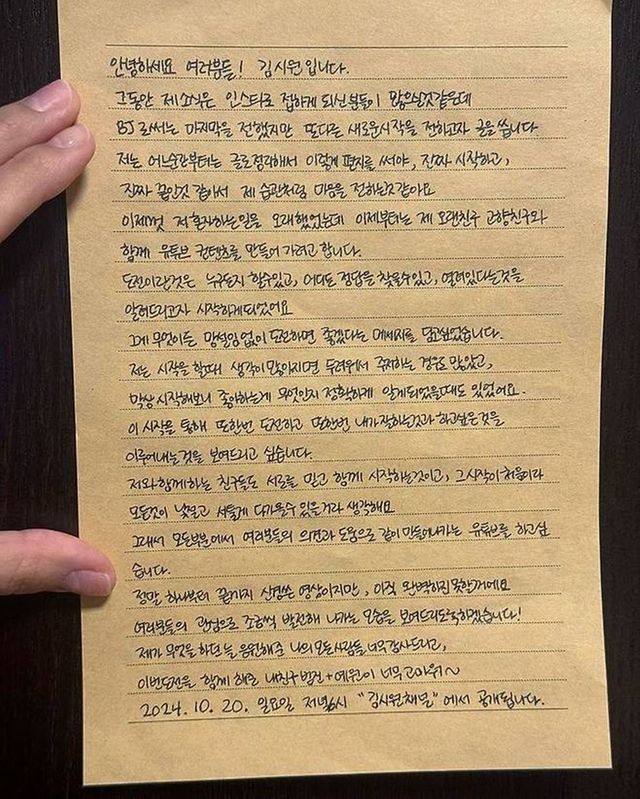 안녕하세요 여러분들! 김시원입니다.
그동안 제 소식은 인스타로 접하게 되신분들이 많으실것같은데
BJ로써는 마지막을 전했지만 또다른 새로운시작을 전하고자 글을 씁니다
저는 어느순간부터는 글로 정리해서 이렇게 편지를 써야, 진짜 시작하고,
진짜 끝인것 같아서 제 습관처럼 마음을 전하는것같아요
이제껏 저 혼자하는일을 오래했었는데 이제부터는 제 오랜친구 고향친구와
함께 유튜브 컨텐츠를 만들어 가려고 합니다.
도전이란것은 누구든지 할수있고, 어디든 정답을 찾을수있고, 열려있다는것을
알려드리고자 시작하게되었어요
그게 무엇이든 망설임없이 도전하면 좋겠다는 메세지를 담고싶었습니다.
저는 시작을 할때 생각이 많아지면 두려워서 주저하는 경우도 많았고,
막상 시작해보니 좋아하는게 무엇인지 정확하게 알게되었을때도 있었어요.
이 시작을 통해 또한번 도전하고 또한번 내가잘하는것과 하고싶은것을
이루어내는것을 보여드리고 싶습니다.
저와 함께 하는 친구들도 서로를 믿고 함께 시작하는것이고, 그시작이 처음이라
모든것이 낯설고 서툴게 다가올수 있을거라 생각해요
그래서 모든부분에서 여러분들의 의견과 도움으로 같이 만들어나가는 유튜브를 하고싶
습니다.
정말 하나부터 끝까지 신경쓴 영상이지만, 아직 완벽하진못할거에요
여러분들의 관심으로 조금씩 발전해 나가는 모습을 보여드리도록하겠습니다!
제가 무엇을 하던 늘 응원해준 나의모든사람들 너무감사드리고,
이번도전을 함께 해줄 내친구 범진+예원이 너무고마워~
2024. 10. 20. 일요일 저녁6시 "김시원채널"에서 공개됩니다.